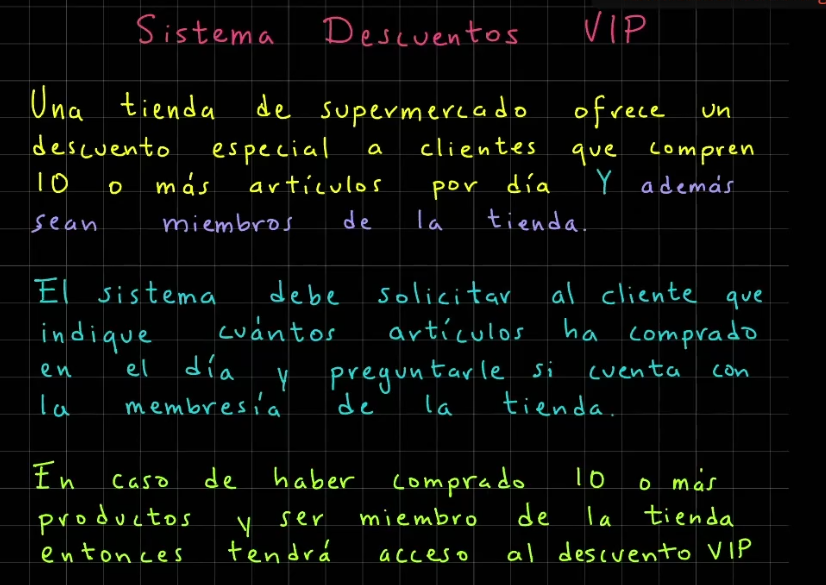 Sistema Descuentos VIP
Una tienda de supermercado ofrece un
descuento especial a clientes que compren
10 o más artículos por día Y además
sean miembros de la tienda.
El sistema debe solicitar al cliente que
indique cuántos artículos ha comprado
en el día y preguntarle si cuenta con
la membresía de la tienda.
En caso de haber comprado 10 o más
productos y ser miembro de la tienda
entonces tendrá acceso al descuento VIP